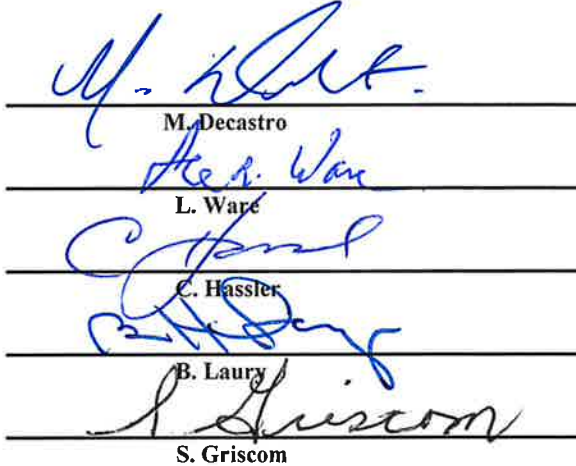 M.
M. Decastro
Ware
L. Ware
C
C. Hassler
B. Laury
S Griscom
S. Griscom